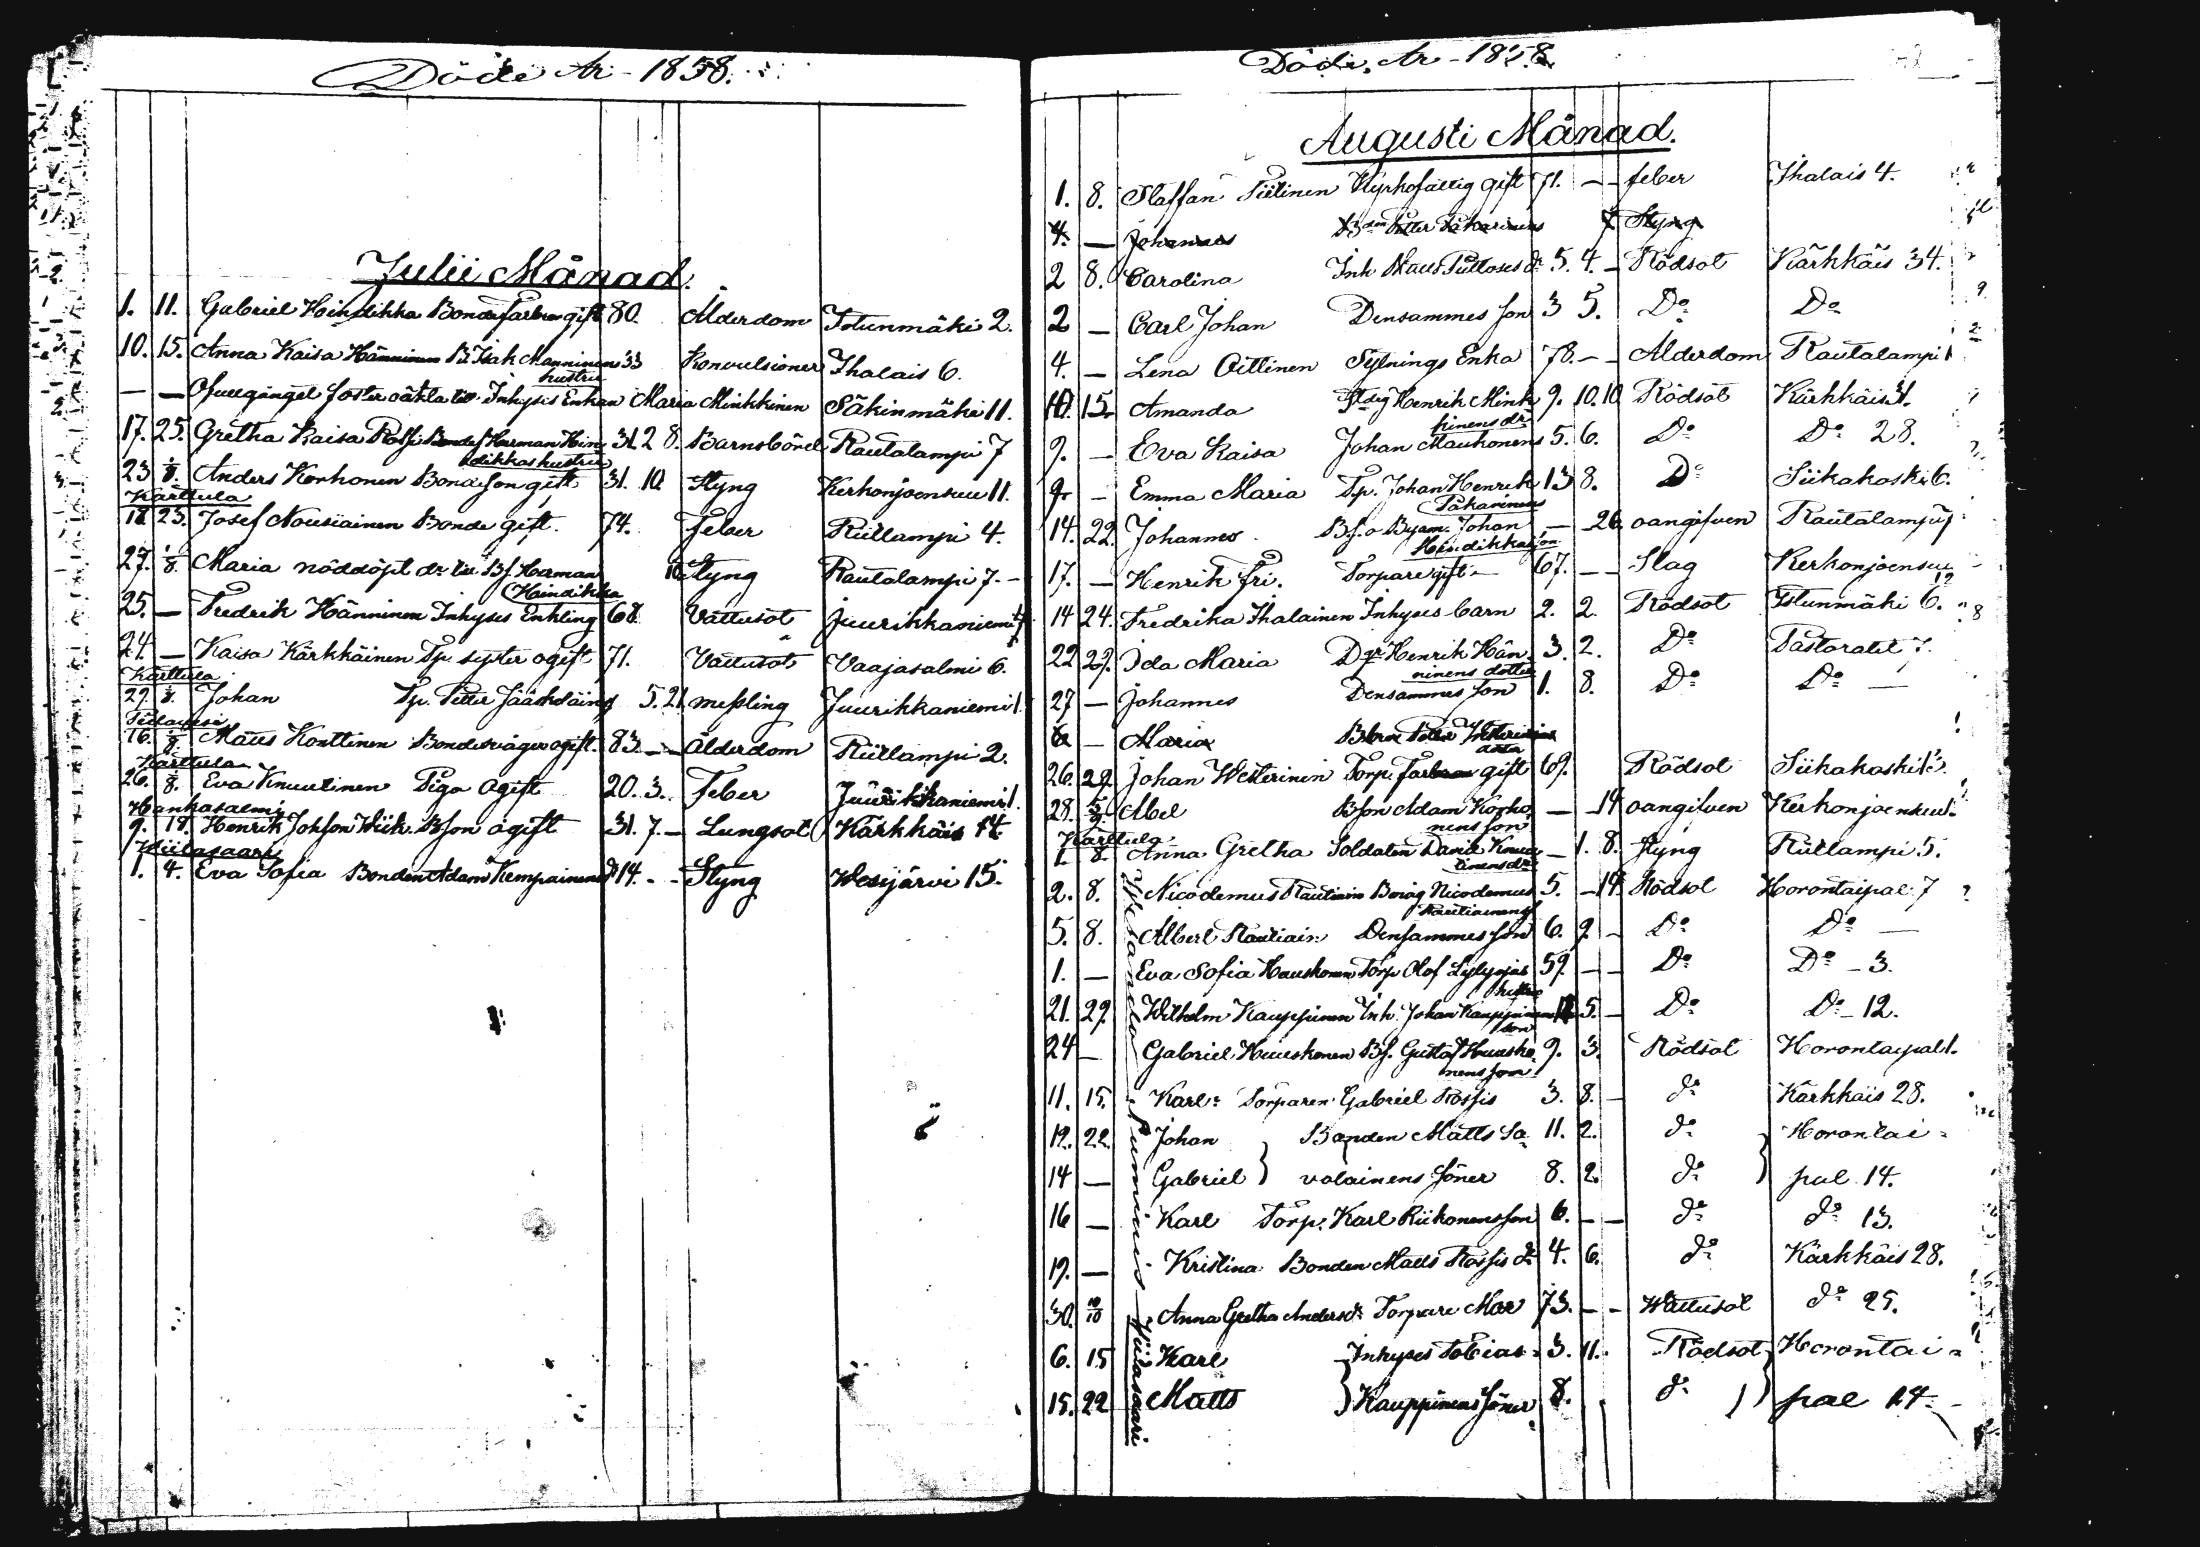 Döde År - 1858.
Julii Månad.
1. 11. Gabriel Hindikka Bonde farbror gift 80. Ålderdom Istunmäki 2.
10. 15. Anna Kaisa Hänninen B. Isak Manninens 33 Konvulsioner Ihalais 6.
hustru
— — Ofullgånget foster oäkta till Inhyses Enkan Maria Minkkinen Säkinmäki 11.
17. 25. Gretha Kaisa Bondes Herman Hin- 31. 2 8. Barnsbörd Rautalampi 7
dikkas hustru
23 1/8. Anders Korhonen Bondeson gift 31. 10. Styng Kerkonjoensuu 11.
Karttula
18. 25. Josef Nousiainen Bonde gift. 74. Feber Riitlampi 4.
27. 1/8 Maria nöddöpt dr till Bf. Herman 10 Styng Rautalampi 7. —
Hindikka
25. — Fredrik Hänninen Inhyses Enkling 68 Vattusot Juurikkaniemi 4
24. — Kaisa Kärkkäinen Tp. syster ogift 71. Vattusot Vaajasalmi 6.
Karttula
29. 1/8. Johan Tp. Petter Jääskeläin 5. 21. messling Juurikkaniemi 1.
16. 1/8. Matts Konttinen Bondesvåger ogift. 83. — — Ålderdom Riitlampi 2.
Karttula
26. 1/8. Eva Knuutinen Piga Ogift 20. 3. Feber Juurikkaniemi 1.
Hankasalmi
9. 18. Henrik Johsson Wiik. Bson ogift 31. 7. — Lungsot Kärkkäis 14.
Wiitasaari
1. 4. Eva Sofia Bonden Adam Kempainens d 14. - - Styng Wesijärvi 15.
Döde. År - 1858
Augusti Månad.
1. 8. Staffan Piitinen Kyrkofattig gift 71. — — feber Ihalais 4.
4. — Johannes Bden Petter Pakarinens 7 Styng
2 8. Carolina Inh Matts dr. 5. 4. — Rödsot Kärkkäis 34.
2 — Carl Johan Densammes son 3 5. Do Do
4. — Lena Oittinen Sytnings Enka 78. — — Ålderdom Rautalampi 1
10. 15. Amanda Henrik Mink- 9. 10. 10. Rödsot Kärkkäis 31.
kinens dr
9. — Eva Kaisa Johan Maukonens 5. 6. Do Do 28.
9. — Emma Maria Tp. Johan Henrik 13 8. Do Siikakoski 6.
Pakarinens
14. 22. Johannes Bf. o Byam. Johan — 26. oangifven Rautalampi 7
Hindikkas son
17. — Henrik Fri. Torpare gift — 67. — — Slag Kerkonjoensuu
12
14 24. Fredrika Ihalainen Inhyses barn 2. 2. Rödsot Istunmäki 6.
22 29. Ida Maria Henrik Hän- 3. 2. Do Pastoratet 7.
ninens dotter
27 — Johannes Densammes son 1. 8. Do Do —
— Maria Petter Westerinens
26. 29. Johan Westerinen Torp. farbror gift 69. Rödsot Siikakoski 13.
28. 5/9. Abel Bson Adam Korho- — 14 oangifven Kerkonjoensuu
nens son
Karttula
1. 8. Anna Gretha Soldaten David Knuu- — 1. 8. Styng Riitlampi 5.
tinens dr
2. 8. Nicodemus Rautiainen Bmåg Nicodemus 5. — 14. Rödsot Horontaipal 7
Rautiainens
5. 8. Albert Rautiain: Densammes son 6. 9 — Do Do —
1. — Eva Sofia Hauskonen Torp Olof 59. — — Do Do — 3.
hustru
21. 29. Wilhelm Kauppinen Inh. Johan Kauppinens 5. — Do Do — 12.
son
24 — Gabriel Huuskonen Bf. Gustaf Huusko- 9. 3. Rödsot Horontaipal 1.
nens son
11. 15. Karl: Torparen Gabriel Rossis 3. 8. — do Kärkkäis 28.
12. 22 Johan } Bonden Matts Sa- 11. 2. do } Horontai-
14 — Gabriel } volainens söner 8. 2. do } pal 14.
16 — Karl Torp. Karl Riikonens son 6. — — do do 13.
19. — Kristina Bonden Matts Rossis dr 4. 6. do Kärkkäis 28.
30. 10/10 Anna Gretha Andersdr Torpare Mor 73. — — Wattusot do 25.
6. 15 Karl Inhyses Tobias 3. 11. Rödsot Horontai-
15. 22 Matts } Kauppinens söner 8. do } pal 14.
Wiitasaari